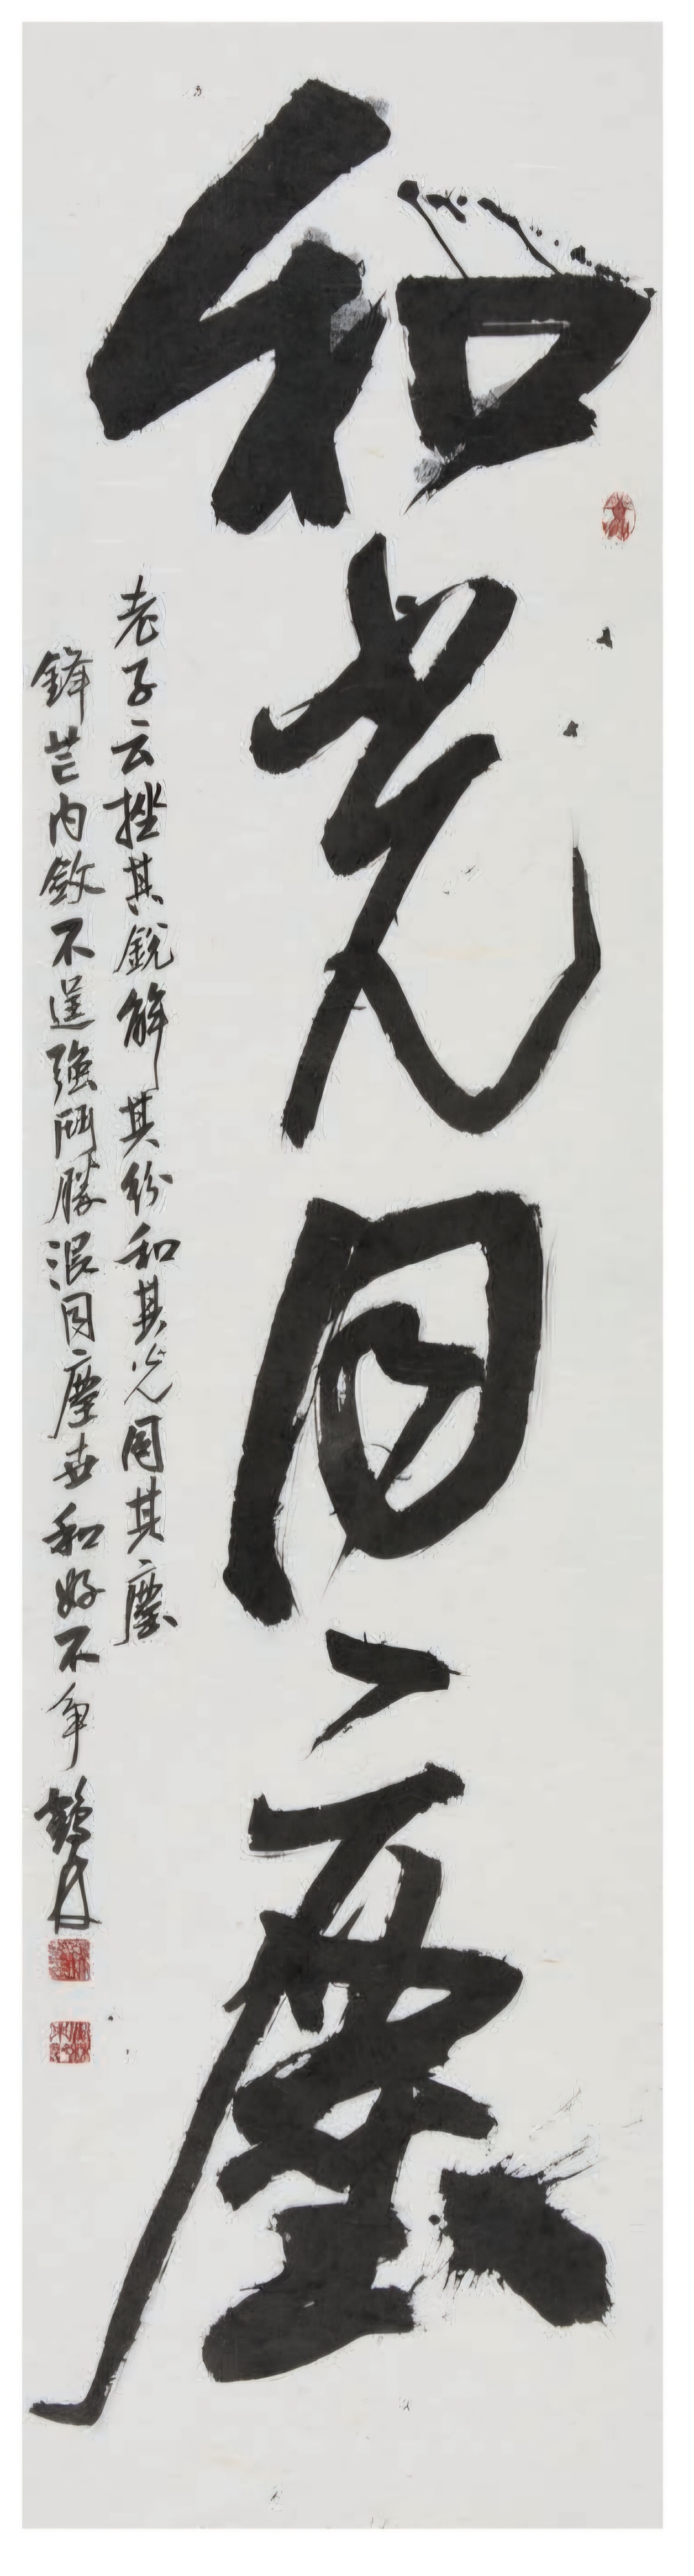 和光同塵
老子云挫其銳解其紛和其光同其塵
鋒芒內斂不逞強鬥勝混同塵世和好不争